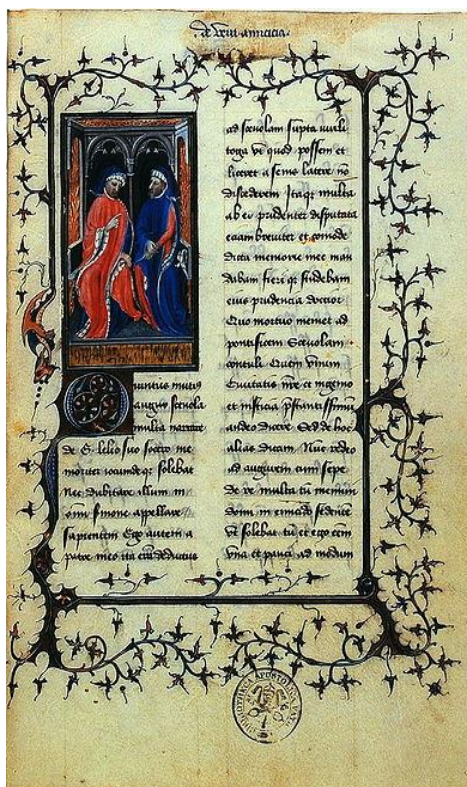 de vera amicicia.
uintus mutius
augur scevola
multa narrare
de G. lelio suo socero me
moriter iocunde qz solebat
Nec dubitare illum in
omi sermone appellare
sapientem Ego autem a
patre meo ita eram deductus
ad scevolam supta virili
toga vt quod possem et
liceret a senis latere nō
discederem Itaqz multa
ab eo prudenter disputata
etiam breviter et comode
dicta memorie mee man
dabam fieri qz studebam
eius prudencia doctior
Quo mortuo memet ad
pontificem Scevolam
contuli Quem vnum
Civitatis nre et ingenio
et iusticia pstantissimum
audeo dicere Sed de hoc
alias dicam Nūc redeo
ad augurem cum sepe
de re multa tū memini
domi in emicido sedente
Vt solebat tū et ego eēm
vna et pauci ad modum